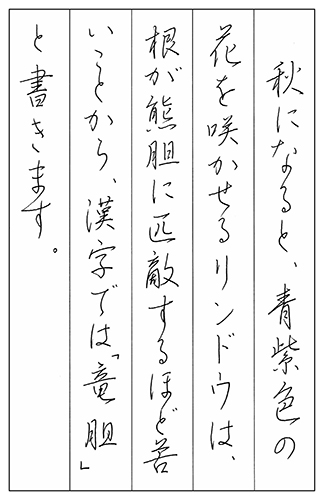 秋になると、青紫色の
花を咲かせるリンドウは、
根が熊胆に匹敵するほど苦
いことから、漢字では「竜胆」
と書きます。